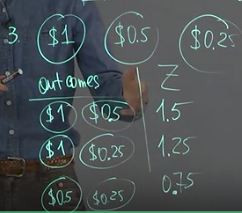 3. $1 $0.5 $0.25
outcomes Z
$1 $0.5 1.5
$1 $0.25 1.25
$0.5 $0.25 0.75